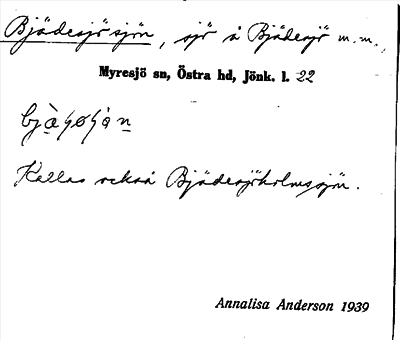 Bjädesjösjön, sjö å Bjädesjö m.m.,
Myresjö sn, Östra hd, Jönk. l. 22
Kallas också Bjädesjöholmssjön.
Annalisa Anderson 1939